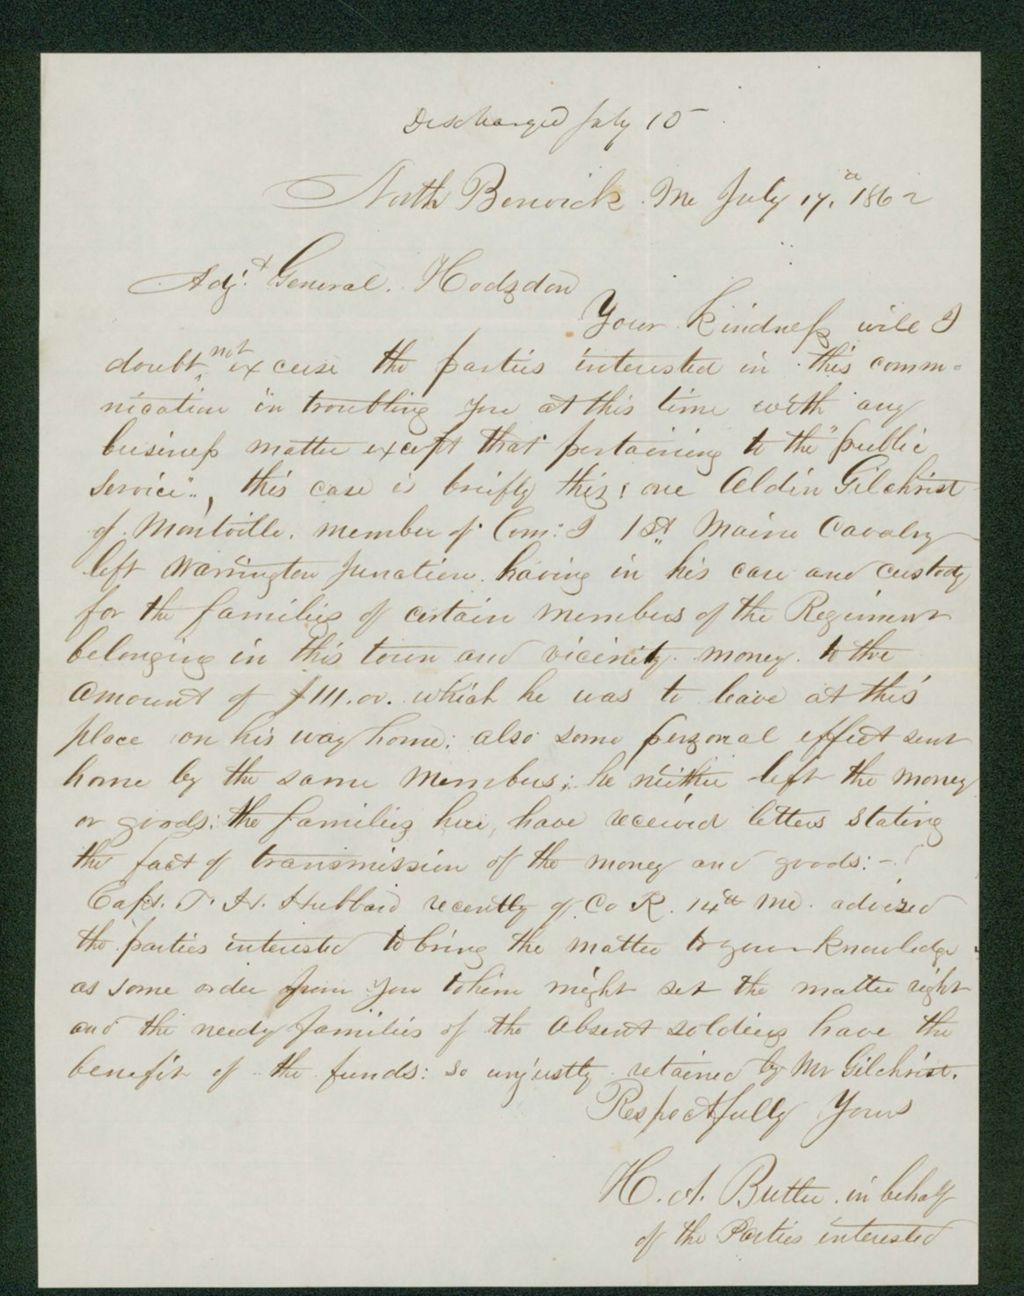 Discharged July 15
North Berwick Me July 17, 1862
Adjt. General. Hodsdon
Your kindness will I
doubt not excuse the parties interested in this comm-
nication in troubling you at this time with any
business matter except that pertaining to the "public
service"., this case is briefly this; one Aldin Gilchrist
of Montville, member of Com: I 1st Maine Cavalry
left Warrington Junation. having in his care and custody
for the families of certain members of the Regiment
belonging in this town and vicinity. money. to the
amount of $111.00. which he was to leave at this
place on his way home; also some personal effect sent
home by the same members; he neither left the money
or goods; the families here, have received letters stating
the fact of transmission of the money and goods: -
Capt. T. H. Hubbard recently of Co K. 14th Me. advised
the parties interested to bring the matter to your knowledge
as some order from you to him might set the matter right
and the needy families of the absent soldiers have the
benefit of the funds: so unjustly retained by Mr Gilchrist.
Respectfully Yours
H. A. Butler in behalf
of the Parties interested